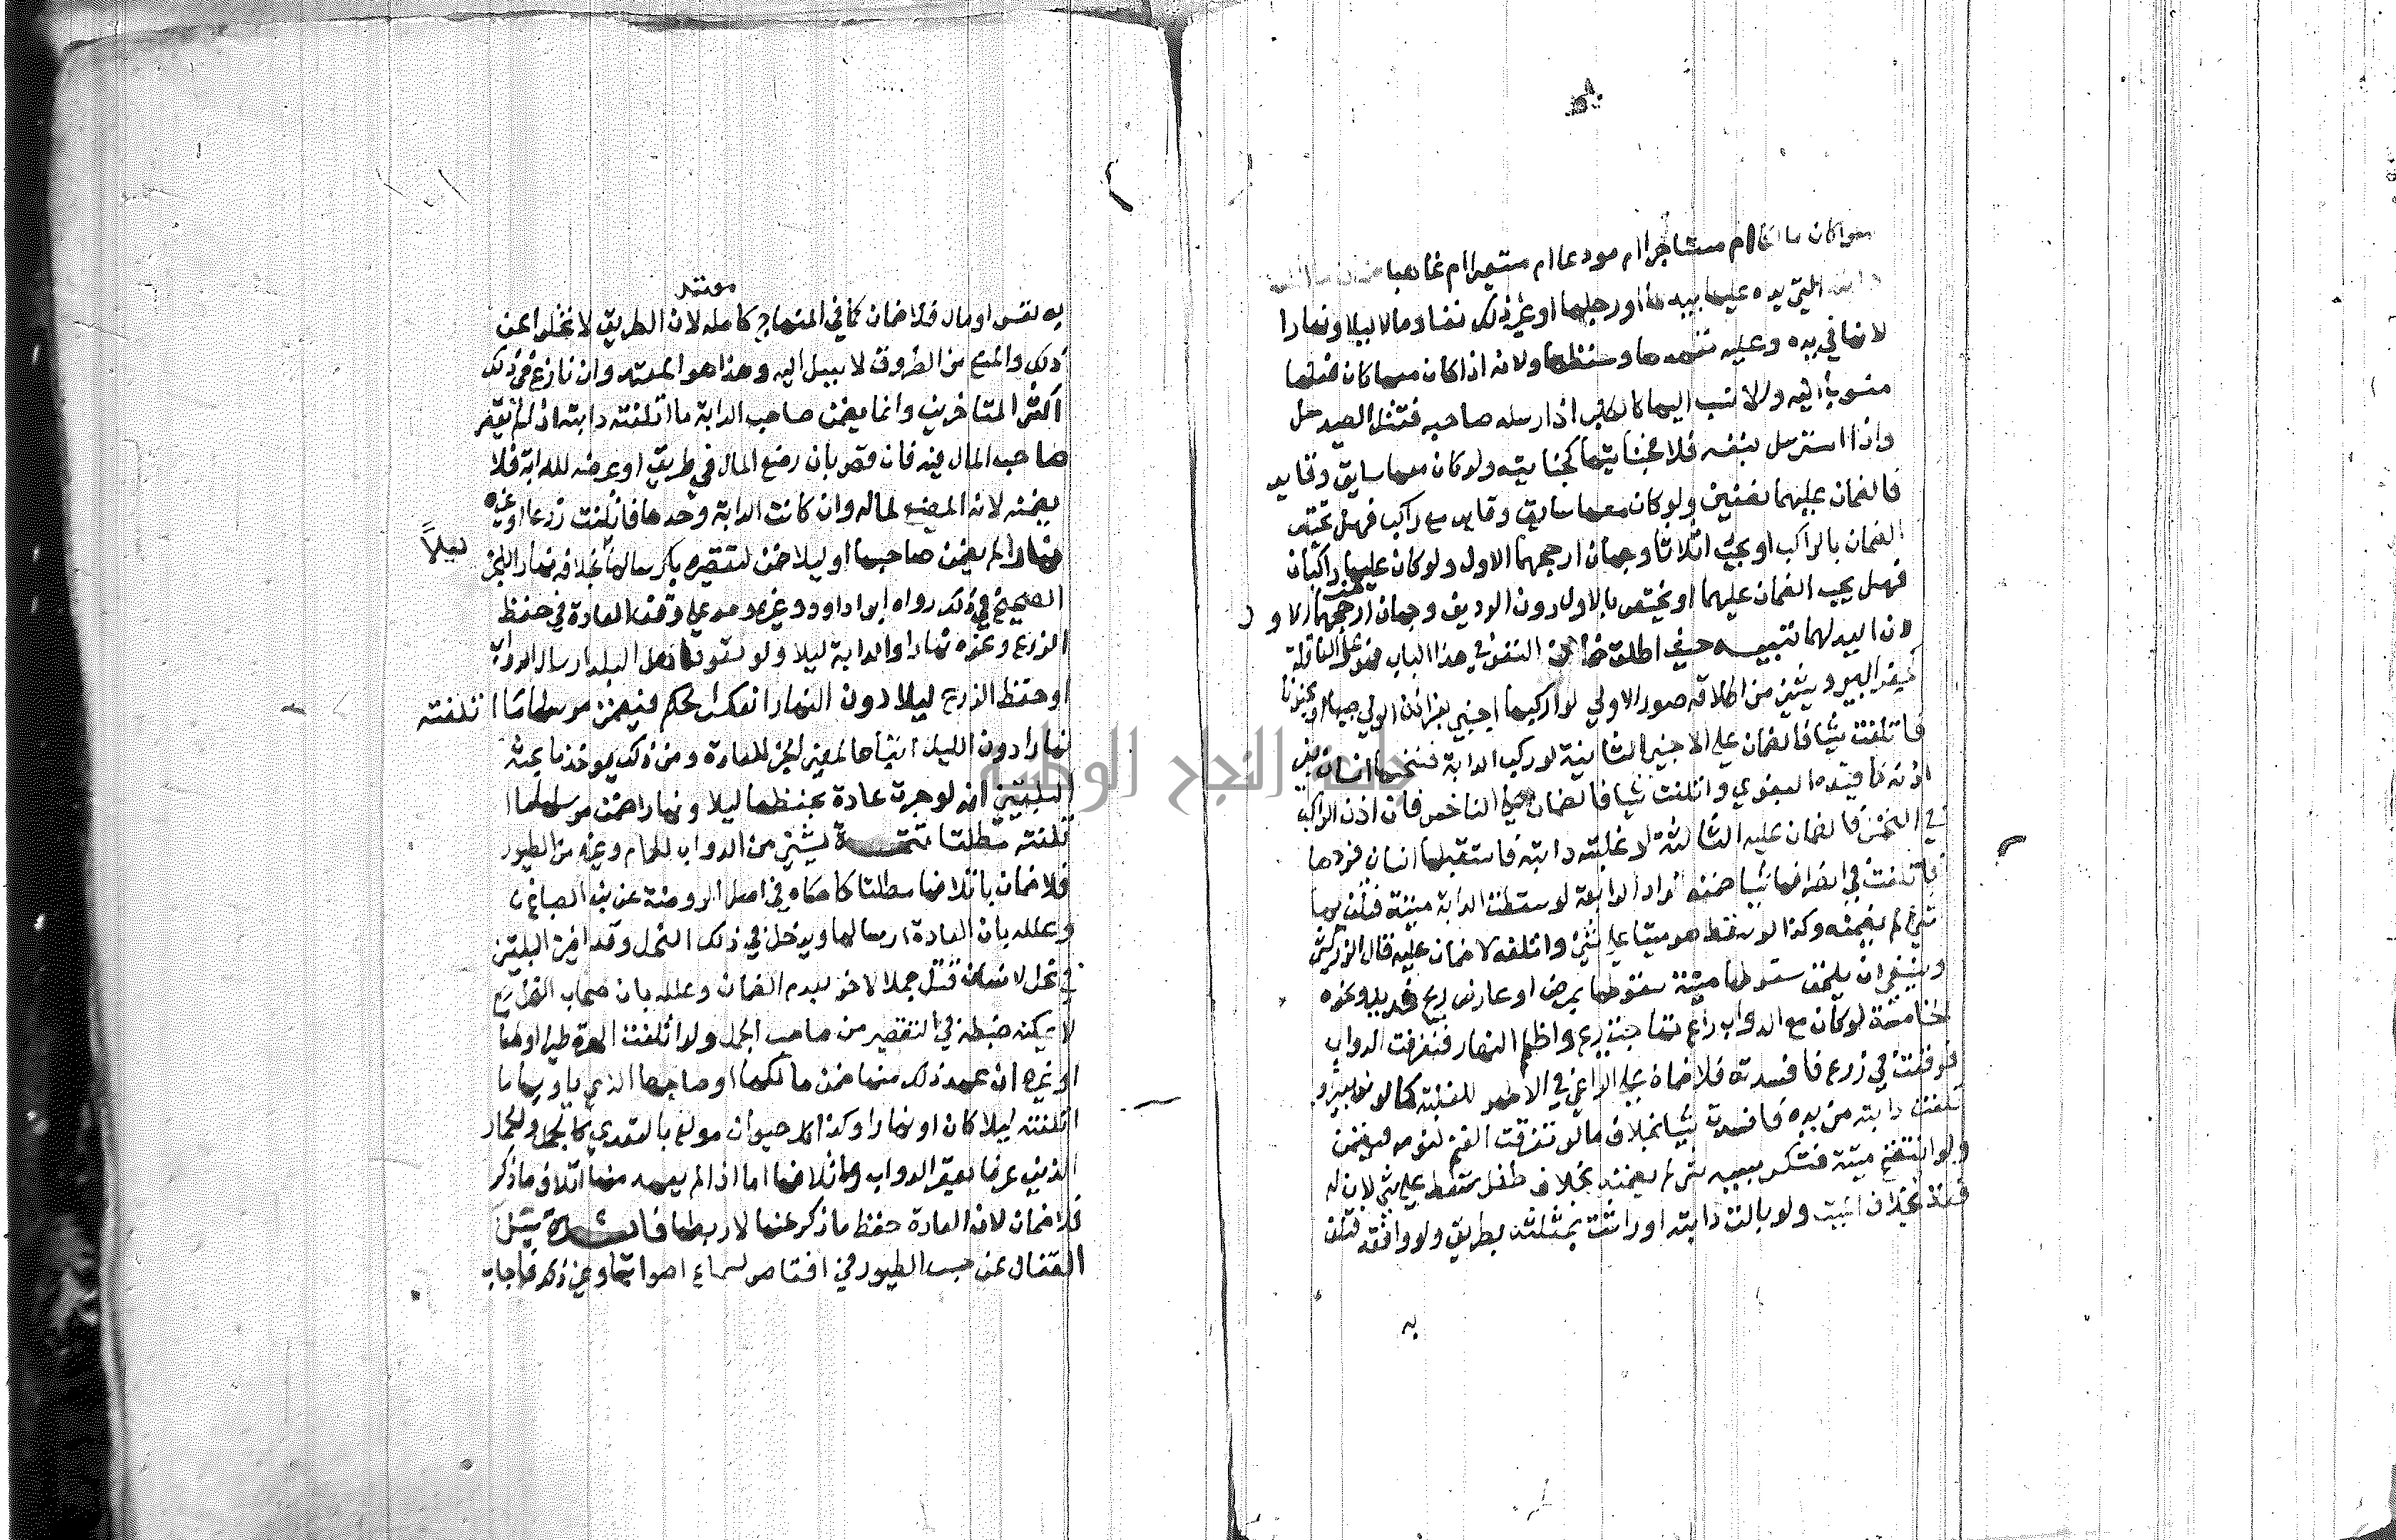 سواكان مالكا ام مستاجرا ام مودعا ام مستعيرا ام غاصبا ضمن ما اتلفت
دابته التي يده عليها بيدها او رجلها او غير ذلك نفسا ومالا ليلا ونهارا
لانها في يده وعليه تعهدها وحفظها ولانه اذا كان معها كان فعلها
منسوبا اليه والا نسب اليها كالكلب اذا ارسله صاحبه فقتل الصيد حل
واذا استرسل بنفسه فلا فجنايتها كجنايته ولو كان معها سايق وقايد
فالضمان عليهما نصفين ولو كان معها سايق وقايد مع راكب فهل يختص
الضمان بالراكب او يجب اثلاثا وجهان ارجحهما الاول ولو كان عليها راكبان
فهل يجب الضمان عليهما او يختص بالاول دون الرديف وجهان ارجحهما الاول
لان اليد لهما تنبيه حيث اطلق ضمان النفس في هذا الباب فهو على العاقلة
كحفر البير ويستثنى من اطلاقه صور الاولى لو اركبها اجنبي بغير اذن الولي صبيا او مجنونا
فاتلفت شيا فالضمان على الاجنبي الثانية لو ركب الدابة فنخسها انسان بغير
اذنه كما قيده البغوي واتلفت شيا فالضمان على الناخس فان اذن الراكب
في النخس فالضمان عليه الثالثة لو غلبته دابته فاستقبلها انسان فردها
فاتلفت في انصرافها شيا ضمنه الراد الرابعة لو سقطت الدابة ميتة فتلف بها
شي لم يضمنه وكذا لو سقط هو ميتا على شي واتلفه لا ضمان عليه قال الزركشي
وينبغي ان يلحق سقوطها ميتة سقوطها بمرض او عارض ريح شديد ونحوه
الخامسة لو كان مع الدواب راع فهاجت ريح واظلم النهار فتفرقت الدواب
فوقعت في زرع فافسدته فلا ضمان على الراعي في الاظهر للغلبة كما لو ند بعيره او
تلفت دابته من يده فافسدت شيا بخلاف ما لو تفرقت الغنم لنومه فيضمن
ولو انتفخ ميتة فتكسر بسببه شي لم يضمنه بخلاف طفل سقط على شي لان له
فعلا بخلاف الميت ولو بالت دابته او راثت بمثلثه بطريق ولو واقفة فتلف
به
موتتد
به نفس او مال فلا ضمان كما في المنهاج كاصله لان الطريق لا تخلوا عن
ذلك والمنع من الطروق لا سبيل اليه وهذا هو المعتمد وان نازع في ذلك
اكثر المتاخرين وانما يضمن صاحب الدابة ما اتلفته دابته اذ لم يقصر
صاحب المال فيه فان قصر بان وضع المال في طريق او عرضه للدابة فلا
يضمنه لانه المضيع لماله وان كانت الدابة وحدها فاتلفت زرعا او غيره
نهارا لم يضمن صاحبها او ليلا ضمن لتقصيره بارسالها ليلاً بخلافه نهارا للخبر
الصحيح في ذلك رواه ابوا داوود وغيره وهو على وفق العادة في حفظ
الزرع ونحوه نهارا والدابة ليلا ولو تعود اهل البلد ارسال الدواب
او حفظ الزرع ليلا دون النهار انعكس الحكم فيضمن مرسلها ما اتلفته
نهارا دون الليل اتباعا لمعنى الخبر للعادة ومن ذلك يوخذ ما بحثه
البلقيني انه لو جرت عادة بحفظها ليلا ونهارا ضمن مرسلها ما
اتلفته مطلقا تتمة يستثنى من الدواب الحمام وغيره من الطيور
فلا ضمان باتلافها مطلقا كما حكاه في اصل الروضة عن بن الصباغ
وعلله بان العادة ارسالها ويدخل في ذلك النحل وقد افتى البلقيني
في نحل لانسان قتل جملا لاخر بعدم الضمان وعلله بان صاحب النحل
لا يمكنه ضبطه في التقصير من صاحب الجمل ولو اتلفت الهرة طيرا او طعاما
او غيره ان عهد ذلك منها ضمن مالكها او صاحبها الذي ياويها ما
اتلفته ليلا كان او نهارا وكذا كل حيوان مولع بالتعدي كالجمل والحمار
الذين عرفا بعقر الدواب واتلافها اما اذا لم يعهد منها اتلاف ما ذكر
فلا ضمان لان العادة حفظ ما ذكر عنها لا ربطها فائدة سئل
القفال عن حبس الطيور في اقفاص لسماع اصواتها وغير ذلك فاجاب
جامعة النجاح الوطنية